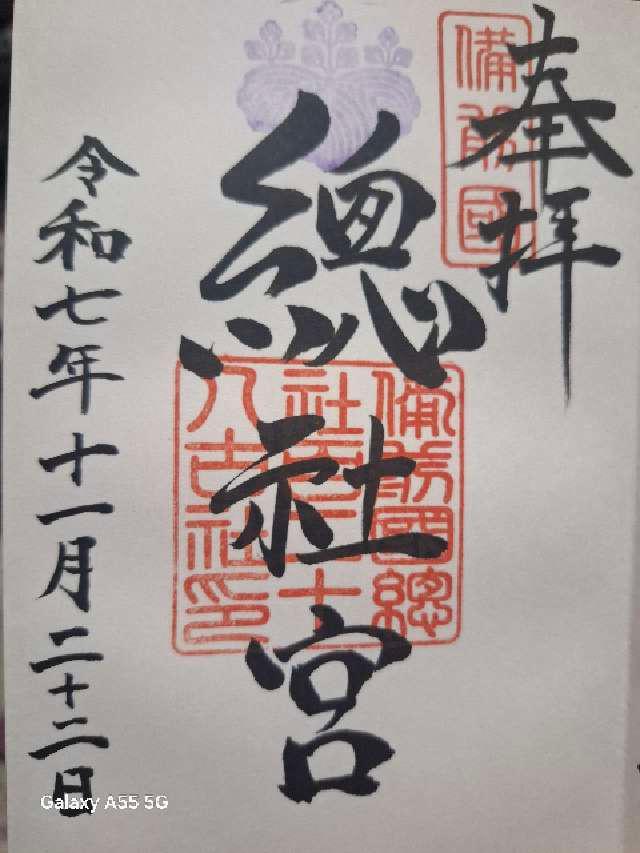 奉拝
備前國
總社宮
備前國總
社百二十
八古社印
令和七年十一月二十二日
Galaxy A55 5G